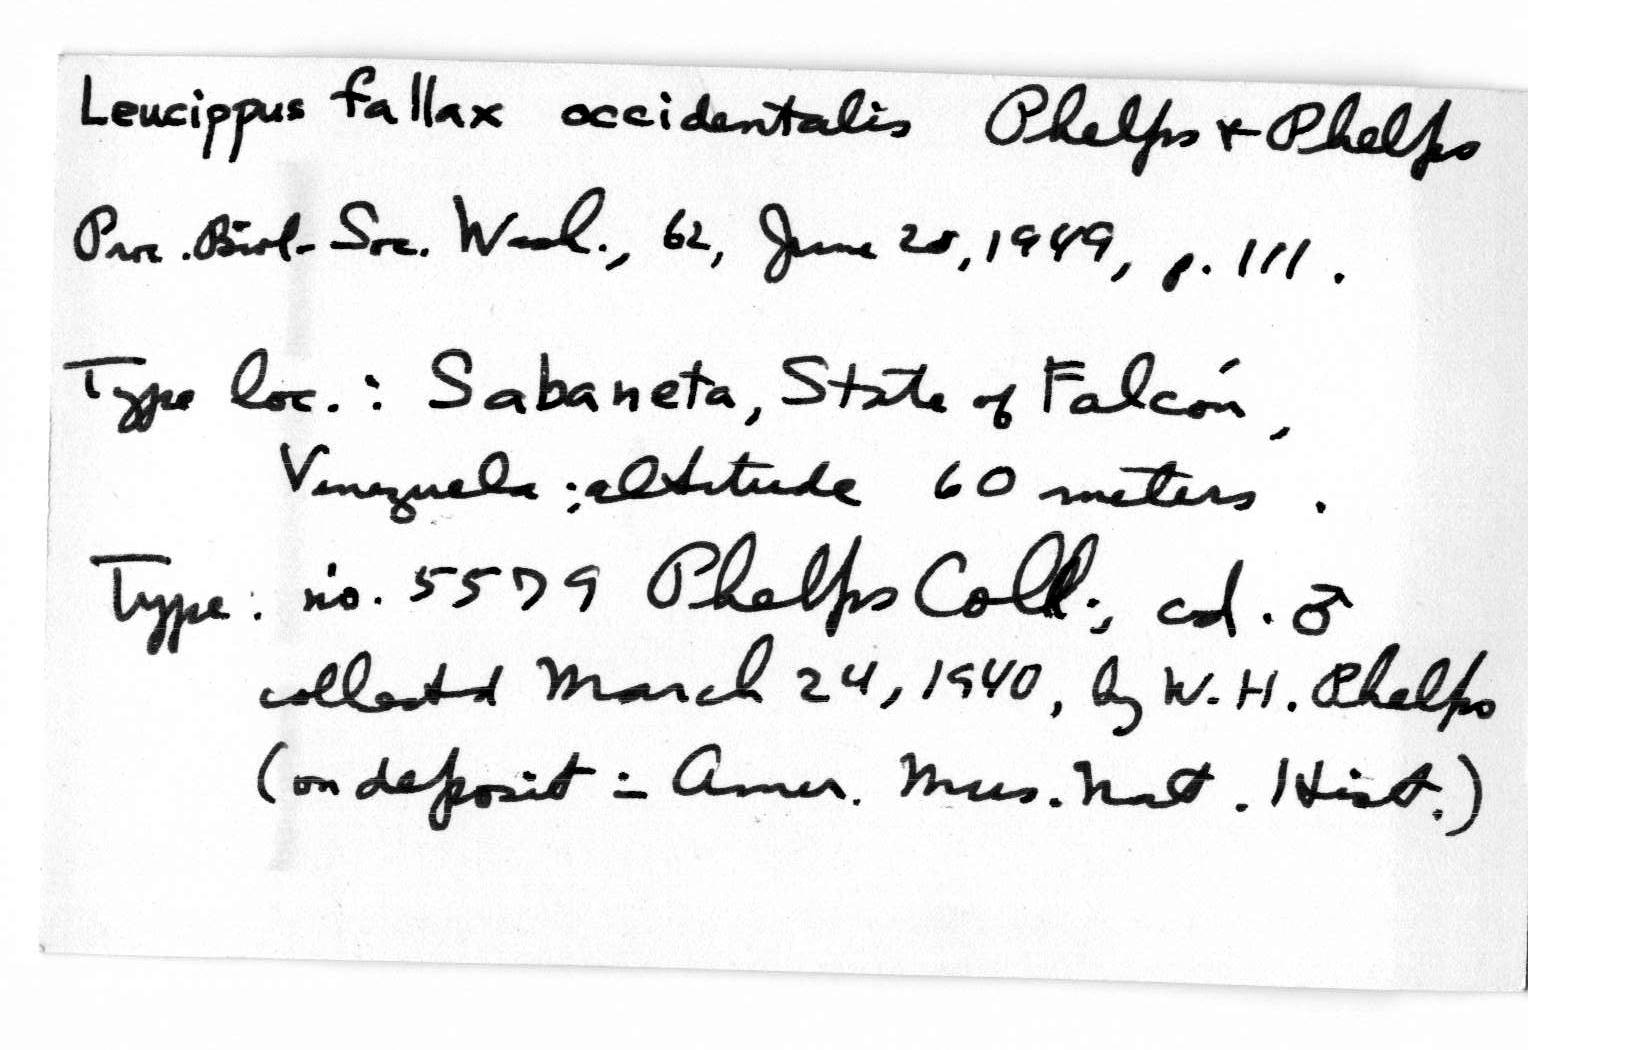 Leucippus fallax occidentalis Phelps & Phelps
Proc. Biol. Soc. Wash., 62, June 28, 1949, p. 111.
Type loc.: Sabaneta, State of Falcón,
Venezuela; altitude 60 meters.
Type: no. 5579 Phelps Coll.; ad. ♂
collected March 24, 1940, by W. H. Phelps
(on deposit in Amer. Mus. Nat. Hist.)